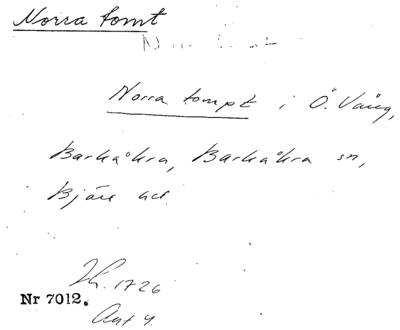 Norra tomt
Norra tompt i Ö. Vång,
Barkåkra, Barkåkra sn,
Bjäre hd.
1726
Nr 7012.